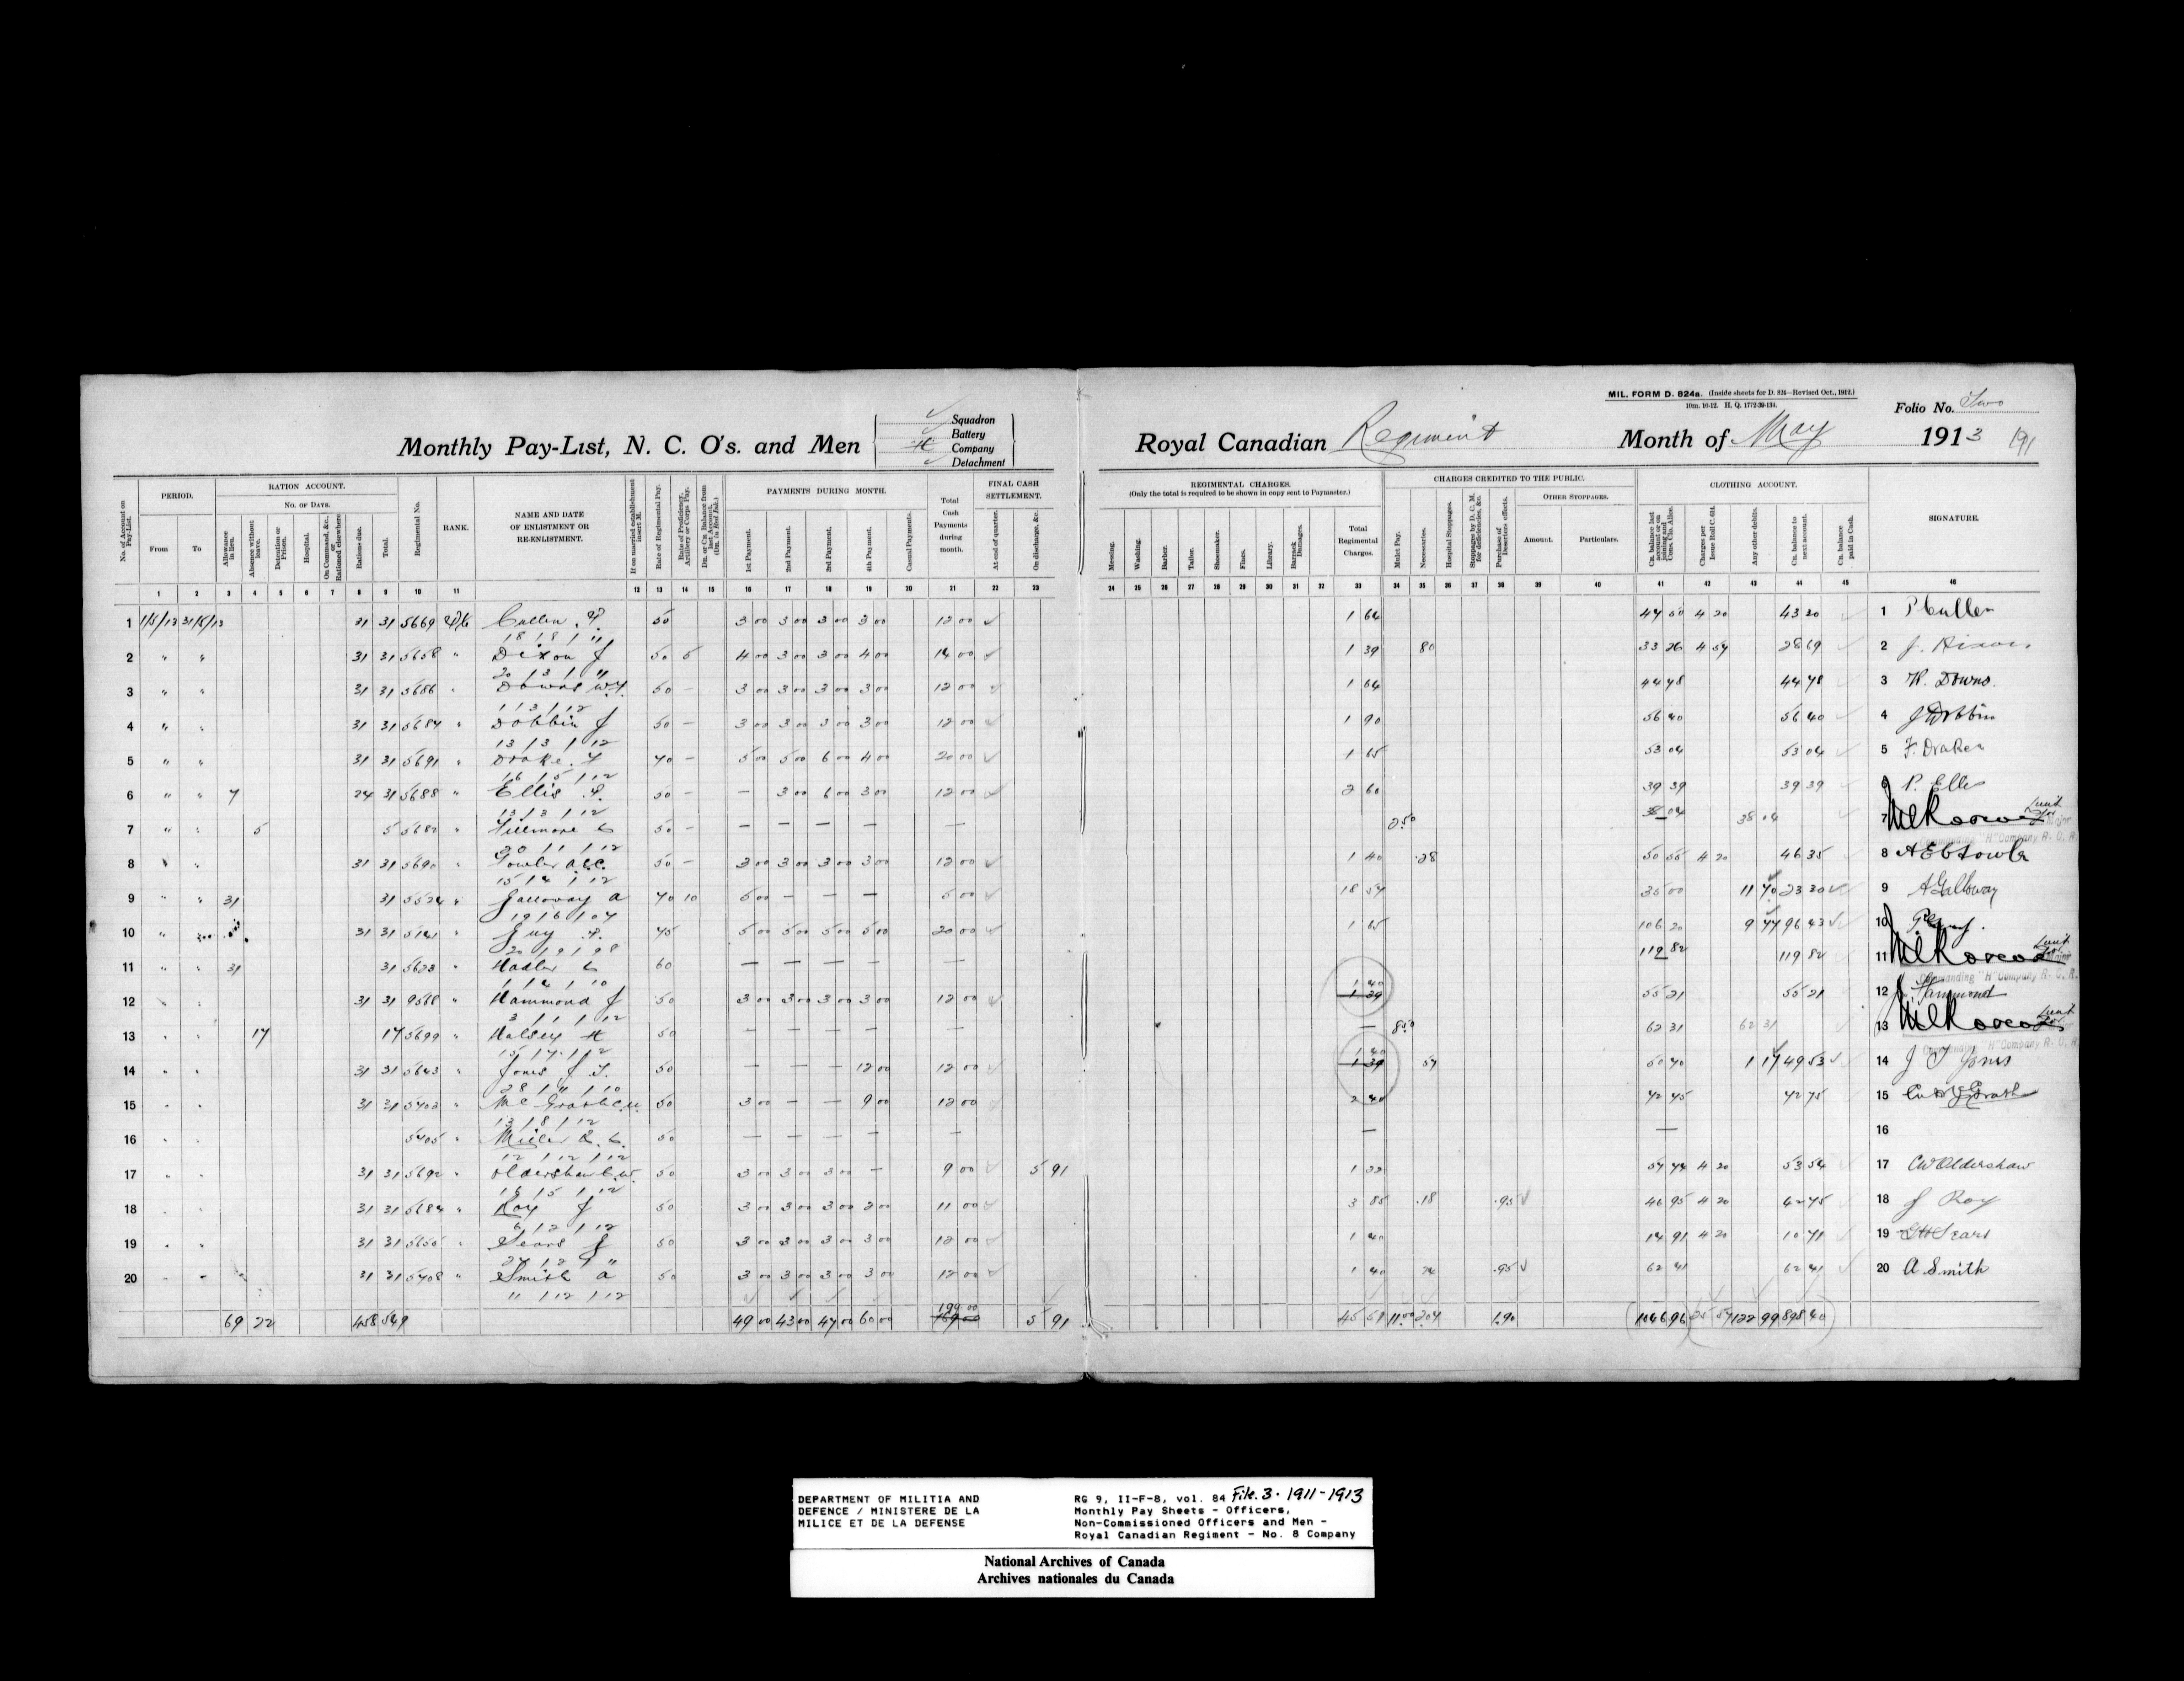 MIL. FORM D. 824a. (Inside sheets for D. 824—Revised Oct., 1912.)
10m. 10-12. H. Q. 1772-39-134.
Folio No. Two
Monthly Pay-List, N. C. O's. and Men
Squadron
Battery
H Company
Detachment
Royal Canadian Regiment Month of May 1913
191
No. of Account on Pay-List.
PERIOD.
From To
RATION ACCOUNT.
No. of Days.
Allowance in lieu.
Absence without leave.
Detention or Prison.
Hospital.
On Command, &c., or Rationed elsewhere
Rations due.
Total.
Regimental No.
RANK.
NAME AND DATE OF ENLISTMENT OR RE-ENLISTMENT.
If on married establishment insert M.
Rate of Regimental Pay.
Rate of Proficiency, Artillery or Corps Pay.
Dr. or Cr. Balance from last Account. (Dr. in Red Ink.)
PAYMENTS DURING MONTH.
1st Payment.
2nd Payment.
3rd Payment.
4th Payment.
Casual Payments.
Total Cash Payments during month.
FINAL CASH SETTLEMENT.
At end of quarter.
On discharge, &c.
REGIMENTAL CHARGES.
(Only the total is required to be shown in copy sent to Paymaster.)
Messing.
Washing.
Barber.
Tailor.
Shoemaker.
Fines.
Library.
Barrack Damages.
Total Regimental Charges.
CHARGES CREDITED TO THE PUBLIC.
Mulct Pay.
Necessaries.
Hospital Stoppages.
Stoppages by D. C. M. for deficiencies, &c.
Purchase of Deserters effects.
OTHER STOPPAGES.
Amount. Particulars.
CLOTHING ACCOUNT.
Cr. balance last account or on joining and Cons. Clo. Allce.
Charges per Issue Roll C. 614.
Any other debits.
Cr. balance to next account.
Cr. balance paid in Cash.
SIGNATURE.
1 2 3 4 5 6 7 8 9 10 11 12 13 14 15 16 17 18 19 20 21 22 23 24 25 26 27 28 29 30 31 32 33 34 35 36 37 38 39 40 41 42 43 44 45 46
1 1/5/13 31/5/13 31 31 5669 Pte Cullen P. 50 3 00 3 00 3 00 3 00 12 00 1 64 4 20 43 30 1 P Cullen
18/8/11
2 " " 31 31 5658 " Dixon J 50 5 4 00 3 00 3 00 4 00 14 00 1 39 80 33 26 28 69 2 J. Dixon
20/3/11
3 " " 31 31 5686 " Downs W.Y. 50 - 3 00 3 00 3 00 3 00 12 00 1 64 44 78 44 78 3 W. Downs.
1/3/12
4 " " 31 31 5684 " Dobbin J 50 - 3 00 3 00 3 00 3 00 12 00 1 90 56 40 56 40 4 J Dobbin
13/3/12
5 " " 31 31 5691 " Drake. F 70 - 5 00 5 00 6 00 4 00 20 00 1 65 53 04 53 04 5 F. Drake
16/5/12
6 " " 7 24 31 5688 " Ellis P. 50 - - 3 00 6 00 3 00 12 00 2 60 39 39 39 39 6 P. Ellis
13/3/12
7 " " 5 5 5682 " Fillmore C 50 - - - - - - 2 50 38 04 38 04 7
Commanding "H" Company R. C. R.
20/1/12
8 " " 31 31 5690 " Fowler A.E.C. 50 - 3 00 3 00 3 00 3 00 12 00 1 40 .28 50 55 4 20 46 35 8 A E C Fowler
15/4/12
9 " " 31 31 5524 " Galloway A 70 10 5 00 - - - 5 00 18 54 35 00 11 70 23 30 9 A Galloway
19/6/07
10 " 31 31 " Guy P. 75 5 00 5 00 5 00 5 00 20 00 1 65 106 20 9 77 96 43 10
20/9/98
11 " " 31 31 5623 " Hadler C 60 - - - - - 119 82 119 82 11
Commanding "H" Company R. C. R.
1/4/10
12 " " 31 31 9568 " Hammond J 50 3 00 3 00 3 00 3 00 12 00 1 40 1 39 55 21 55 21 12 J. Hammond
3/1/12
13 " " 17 17 5699 " Halsey H 50 - - - - - - 8 50 62 31 62 31 13
Commanding "H" Company R. C. R.
15/7/12
14 " " 31 31 5643 " Jones J T. 50 - - - 12 00 12 00 1 40 1 39 57 50 70 1 17 49 53 14 J T Jones
28/11/10
15 " " 31 31 5702 " Mc Grath C.W. 50 3 00 - - 9 00 12 00 2 40 42 75 15
13/8/12
16 " " 5705 " Miller 50 - - - - - - - 16
12/12/12
17 " " 31 31 5692 " Oldershaw C.W. 50 3 00 3 00 3 00 - 9 00 5 91 57 74 4 20 53 54 17 CW Oldershaw
16/5/12
18 " " 31 31 5684 " Roy J 50 3 00 3 00 3 00 2 00 11 00 3 85 .18 .95 46 95 4 20 42 75 18 J Roy
6/2/12
19 " " 31 31 " Sears J 50 3 00 3 00 3 00 3 00 12 00 1 40 14 91 4 20 10 71 19 GH Sears
20 " " 31 31 5708 " Smith A 50 3 00 3 00 3 00 3 00 12 00 1 40 .95 62 41 62 41 20 A. Smith
11/12/12
69 22 458 549 49 00 43 00 47 00 60 00 199 00 5 91 45 51 11.00 2.04 1.90 1046 96 25 57 122 99 898 40
DEPARTMENT OF MILITIA AND
DEFENCE / MINISTERE DE LA
MILICE ET DE LA DEFENSE
RG 9, II-F-8, vol. 84 File. 3. 1911-1913
Monthly Pay Sheets - Officers,
Non-Commissioned Officers and Men -
Royal Canadian Regiment - No. 8 Company
National Archives of Canada
Archives nationales du Canada